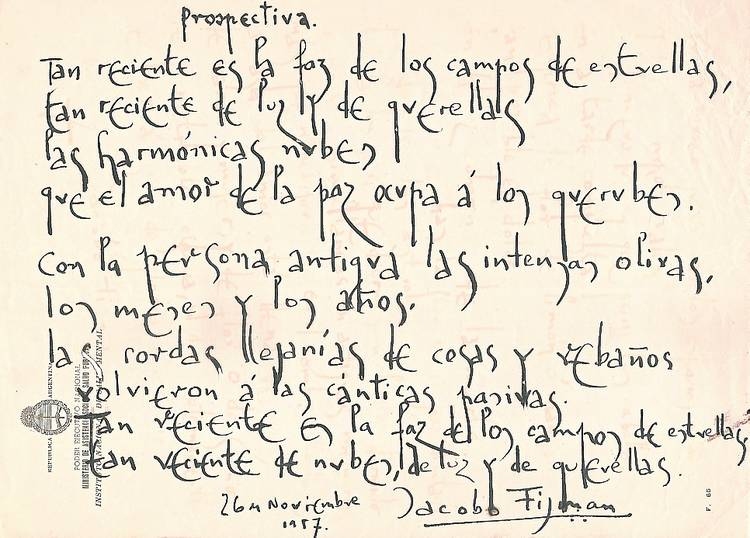 prospectiva.
Tan reciente es la faz de los campos de estrellas,
tan reciente de luz y de querellas
las harmónicas nubes
que el amor de la paz ocupa á los querubes.
Con la persona antigua las intensas olivas,
los meses y los años.
las cordas llejanías de cosas y rebaños
volvieron á las cánticas pasivas.
Tan reciente es la faz de los campos de estrellas
tan reciente de nubes, de luz y de querellas.
26 Noviembre
1957.
Jacobo Fijman
REPUBLICA ARGENTINA
PODER EJECUTIVO NACIONAL
MINISTERIO DE ASISTENCIA SOCIAL Y SALUD
INSTITUTO NACIONAL DE MENTAL
F. 65